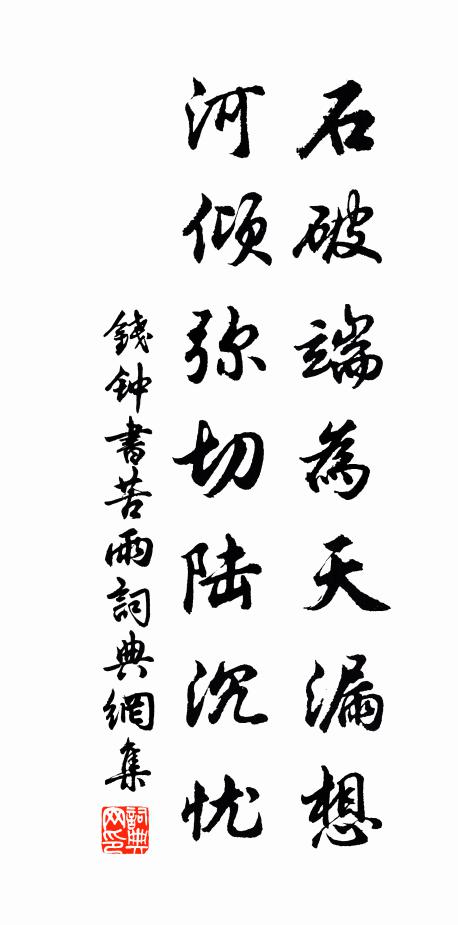 石破端為天漏想
河倾弥切陆沉忧
錢钟書苦雨詞典網集
詞典网印